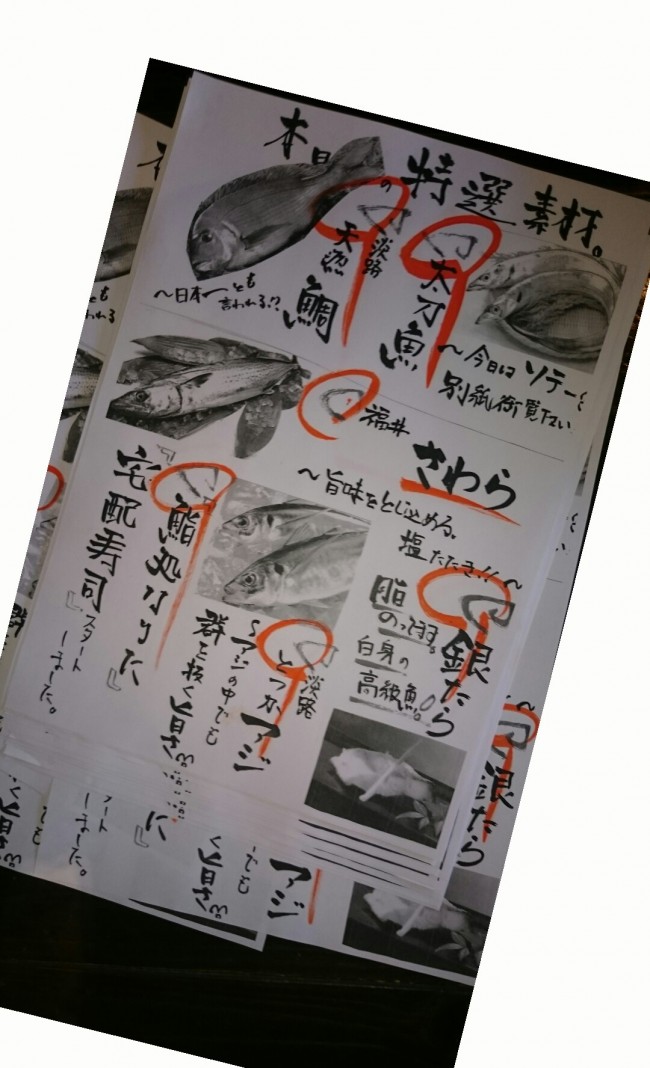 本日の特選素材。
淡路
天然鯛
〜日本一とも
言われる!?
太刀魚
〜今日はソテーで
別紙御覧下さい
福井
さわら
〜旨味をとじ込める。
塩たたき!!〜
銀だら
脂
のった
白身の
高級魚。
淡路
とつかアジ
〜アジの中でも
群を抜く旨さ
『鮨処なりた』
宅配寿司『スタート
しました。
銀だら
アジ
でも
く旨さ
に』
ート
しました。